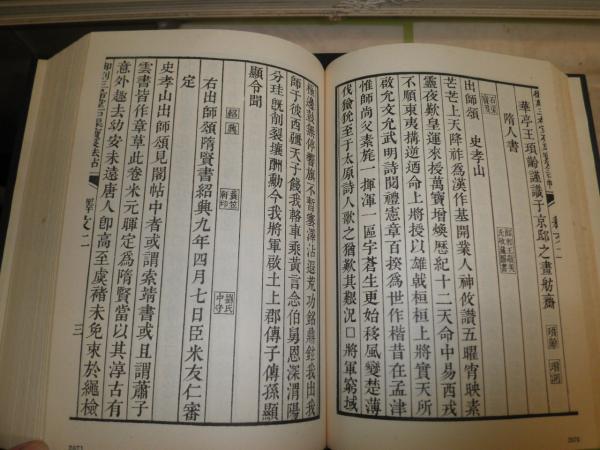 華亭王頊齡謹識于京邸之畫舫齋
隋人書
出師頌 史孝山
芒芒上天降祚為漢作基開業人神攸讚五曜宵映素
靈夜歎皇運來授萬寶增煥歷紀十二天命中易西戎
不順東夷搆逆迺命上將授以雄戟桓桓上將實天所
啟允文允武明詩閱禮憲章百揆為世作楷昔在孟津
惟師尚父素旄一揮渾一區宇蒼生更始移風變楚薄
伐獫狁至于太原詩人歌之猶歎其艱況□將軍窮域
極邊鼓無停響旗不暫褰澤沾遐荒功銘鼎鉉我出我
師于彼西疆天子餞我輅車乘黃言念伯舅恩深渭陽
分珪既削裂壤酬勳今我將軍啟土上郡傳子傳孫顯
顯令聞
紹興
右出師頌隋賢書紹興九年四月七日臣米友仁審
定
史孝山出師頌見閣帖中者或謂索靖書或且謂蕭子
雲書皆作章草此卷米元暉定為隋賢當以其淳古有
意外趣去幼安未遠唐人即高至虞褚未免束於繩檢
三